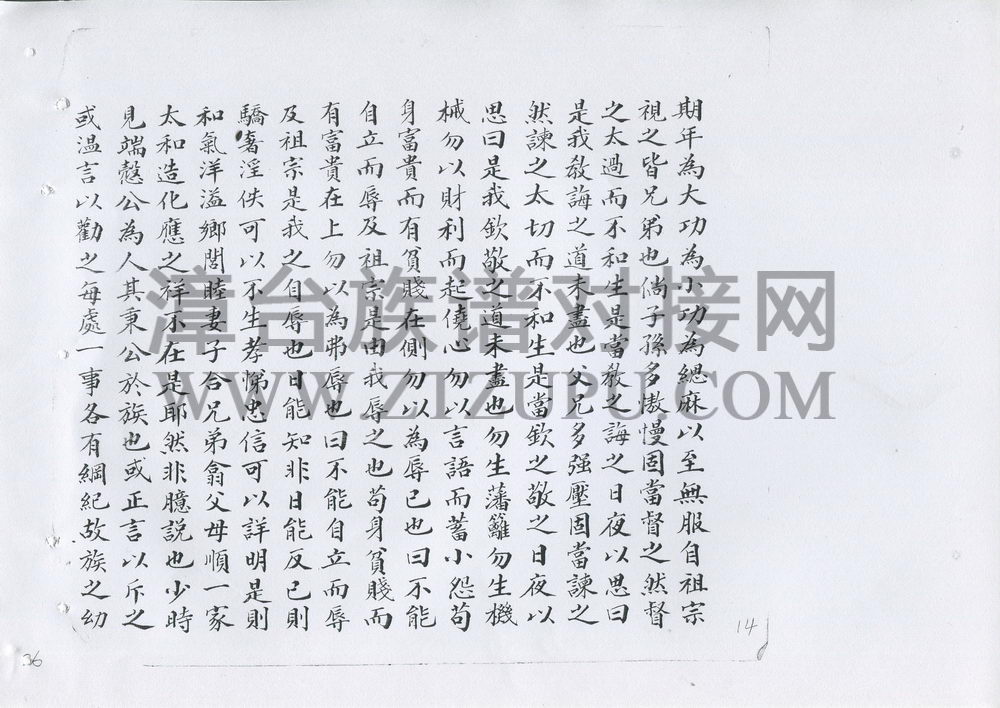 期年為大功為小功為緦麻以至無服自祖宗
視之皆兄弟也倘子孫多傲慢固當督之然督
之太過而不和生是當教之誨之日夜以思曰
是我教誨之道未盡也父兄多强壓固當諫之
然諫之太切而不和生是當欽之敬之日夜以
思曰是我欽敬之道未盡也勿生藩籬勿生機
械勿以財利而起僥心勿以言語而蓄小怨苟
身富貴而有貧賤在側勿以為辱已也曰不能
自立而辱及祖宗是由我辱之也苟身貧賤而
有富貴在上勿以為弗辱也曰不能自立而辱
及祖宗是我之自辱也日能知非日能反已則
驕奢淫佚可以不生孝悌忠信可以詳明是則
和氣洋溢鄉閭睦妻子合兄弟翕父母順一家
太和造化應之祥不在是耶然非臆説也少時
見端慤公為人其秉公於族也或正言以斥之
或温言以勸之每處一事各有綱紀故族之幼
14
36
漳台族谱对接网
WWW.ZTZUPU.COM